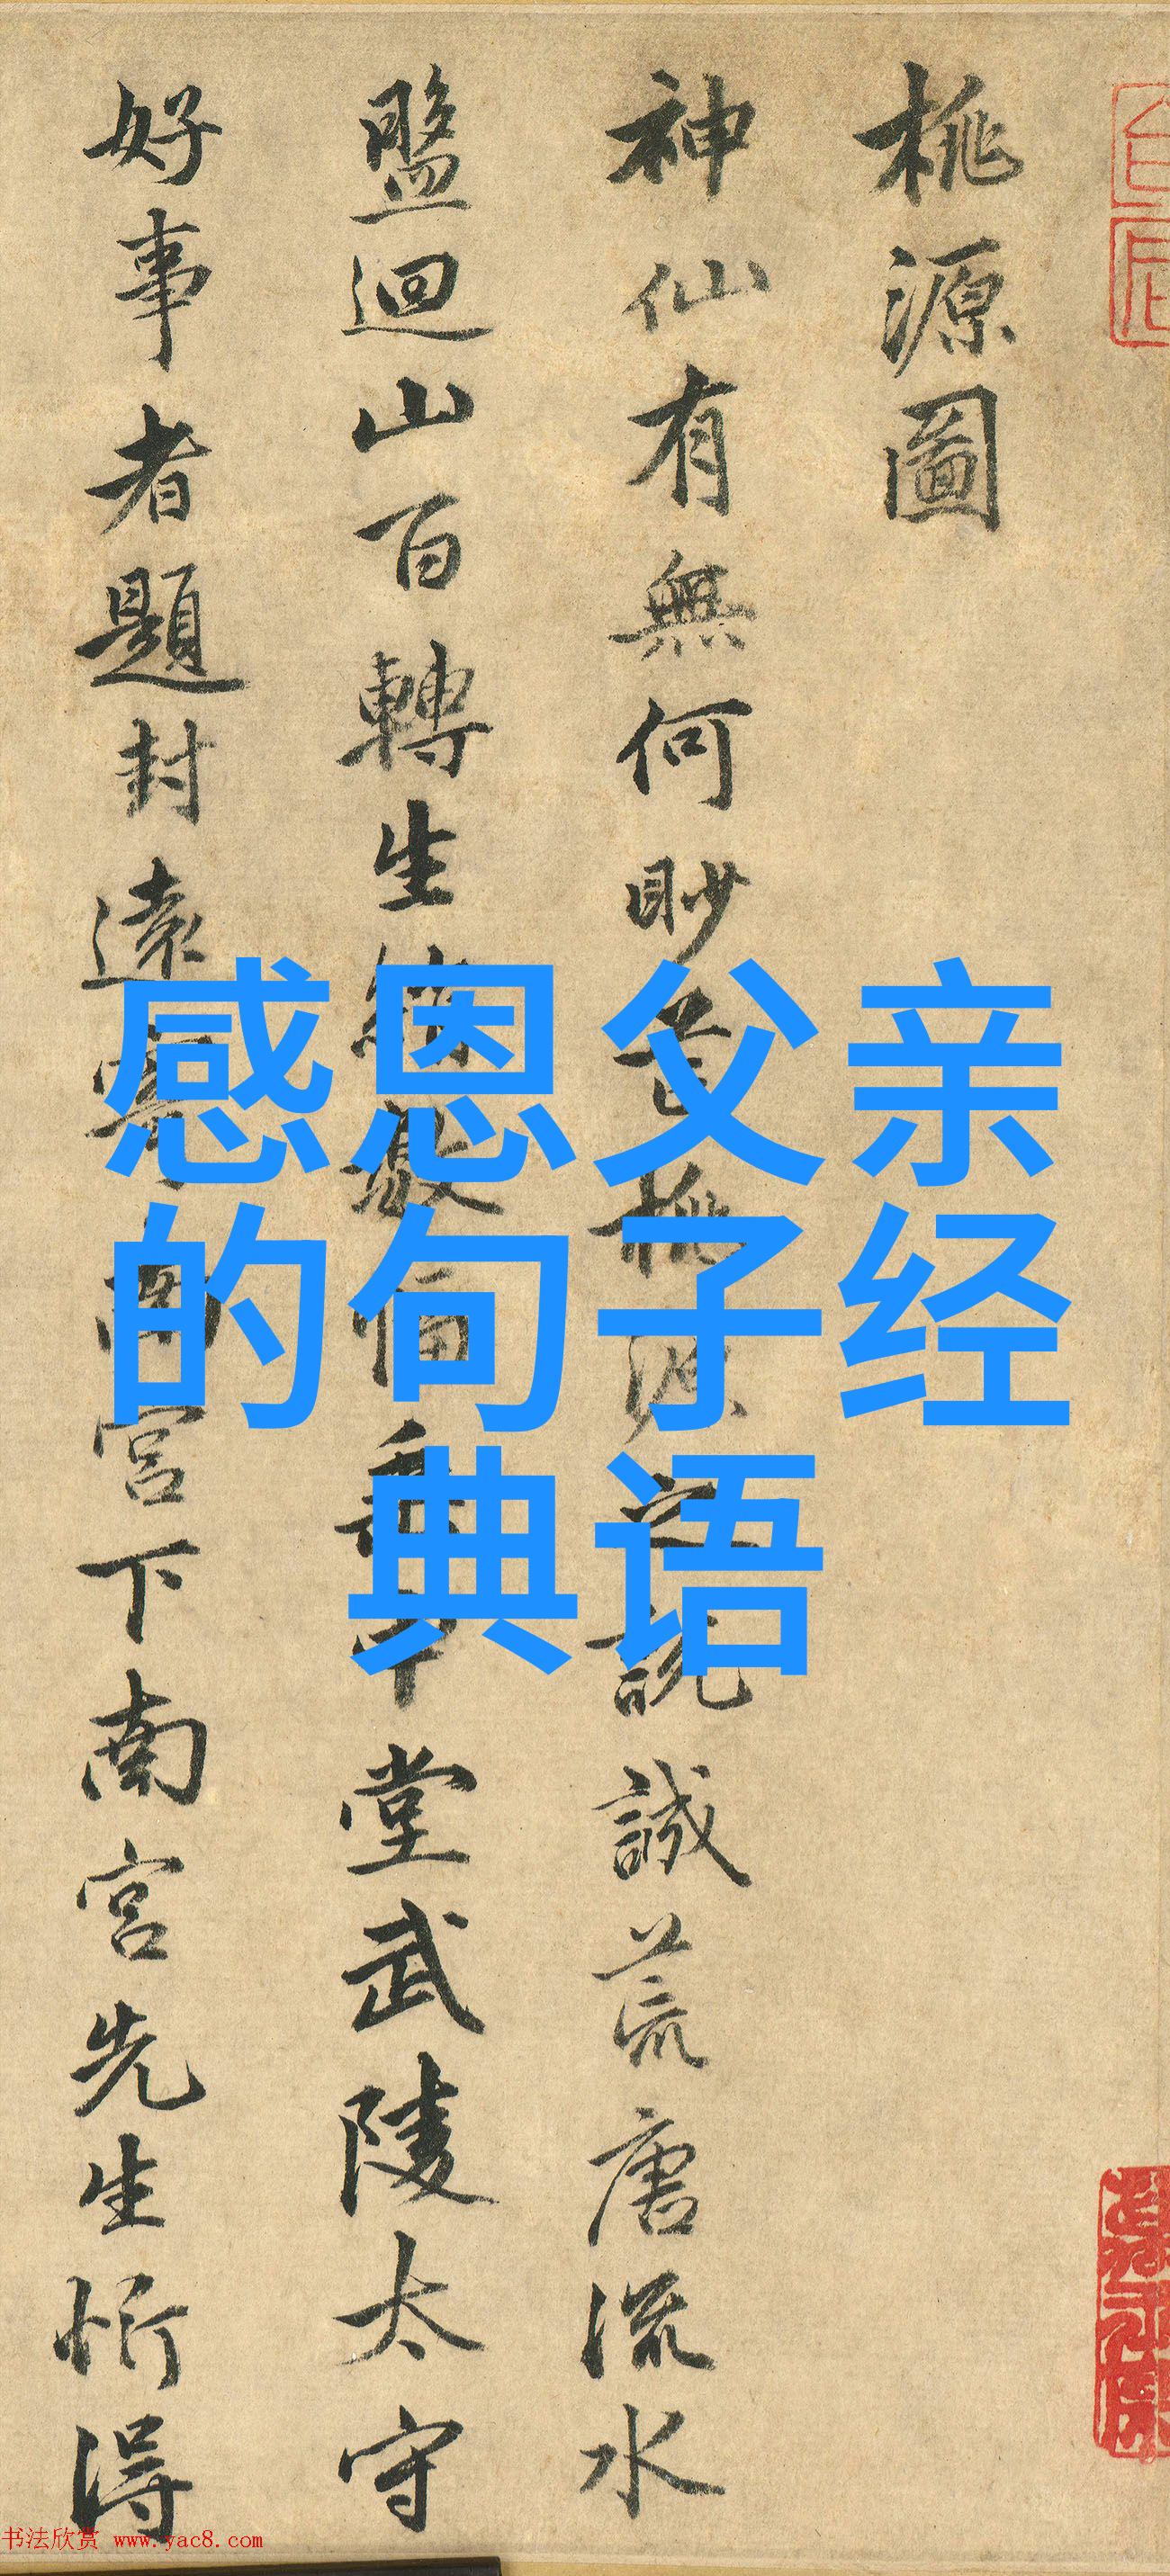 桃源圖
神仙有無何眇芒桃源之說誠荒唐流水
盤迴山百轉生綃數幅垂中堂武陵太守
好事者題封遠寄南宮下南宮先生忻得
感恩父亲
的句子经
典语
书法欣赏 www.yac8.com